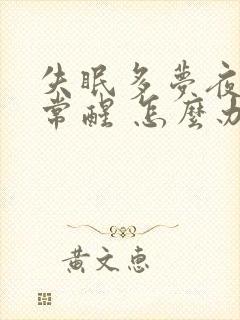 失眠多夢夜
常醒 怎麼办
黃文惠